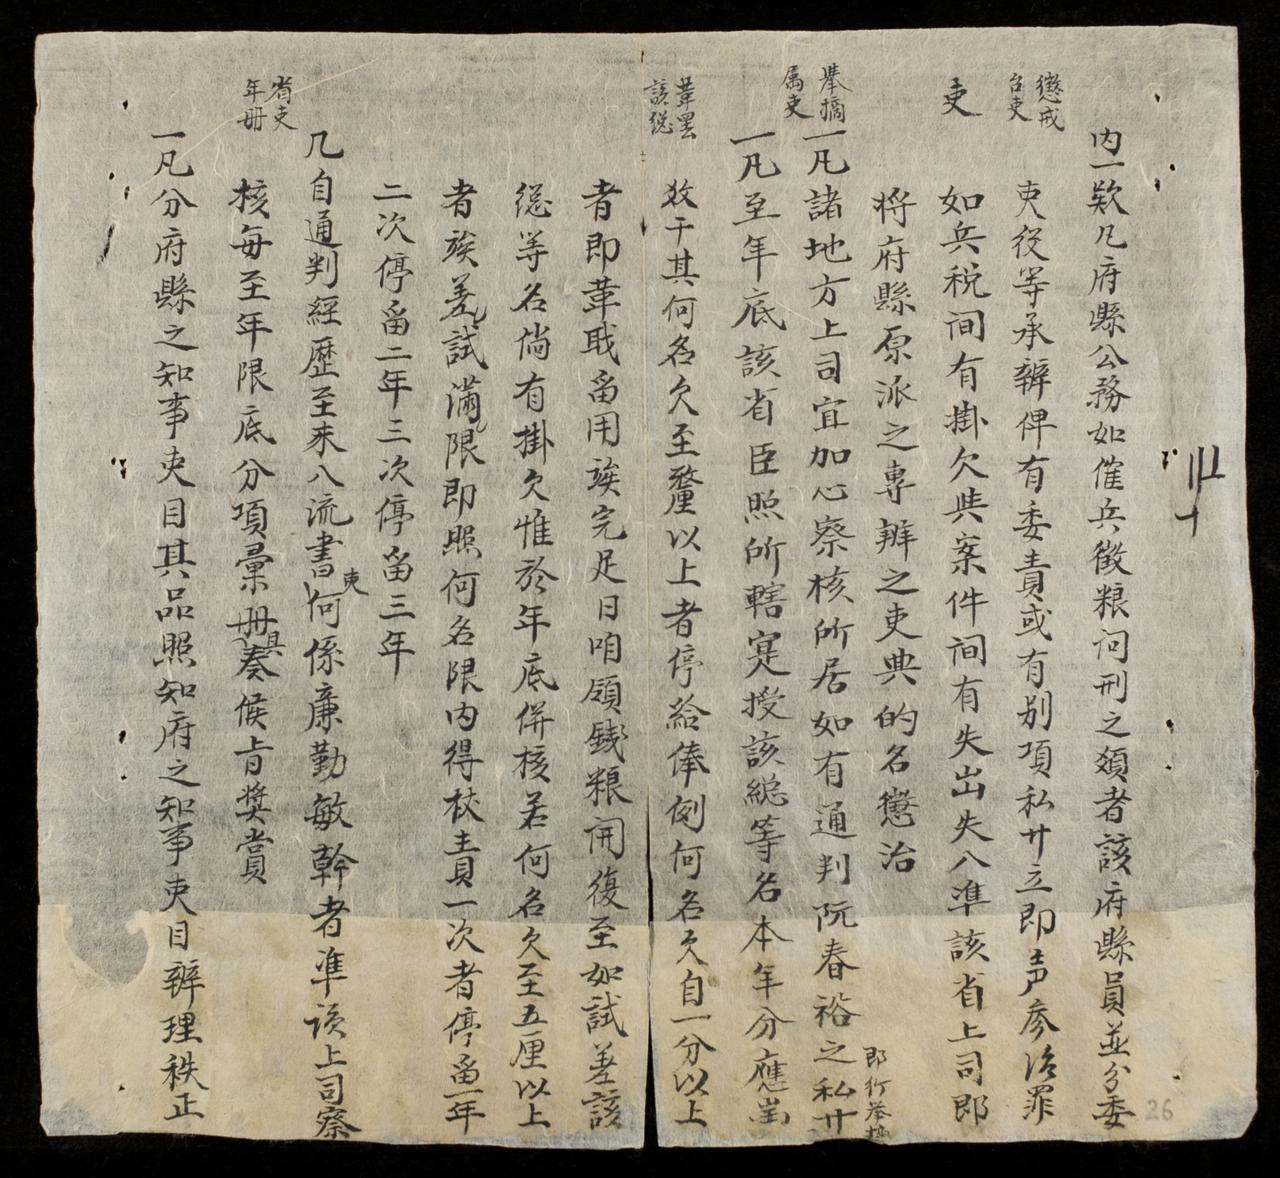 懲戒
台吏
吏
舉摘
属吏
革罢
該総
省吏
年册
内一欵凡府縣公務如催兵徵粮詞刑之類者該府縣員並分委
吏役等承辦俾有委責或有别項私廾立即声參治罪
如兵税间有掛欠與案件间有失出失入準該省上司即
將府縣原派之專辦之吏典的名懲治
一凡諸地方上司宜加心察核所居如有通判阮春裕之私廾
即行举摘
一凡至年底該省臣照所轄寔授該総等名本年分應
攽干其何名欠至釐以上者停給俸例何名欠自一分以上
者即革戝畱用俟完足日咱領錢粮開復至如試差該
総等名倘有掛欠惟於年底併核若何名欠至五厘以上
者俟差試滿限即照何名限内得杖責一次者停畱一年
二次停畱二年三次停畱三年
凡自通判經歷至未八流書吏何係廉勤敏幹者準該上司察
核每至年限底分項彙册具奏候肯奖賞
一凡分府縣之知事吏目其品照知府之知事吏目辦理秩正
26